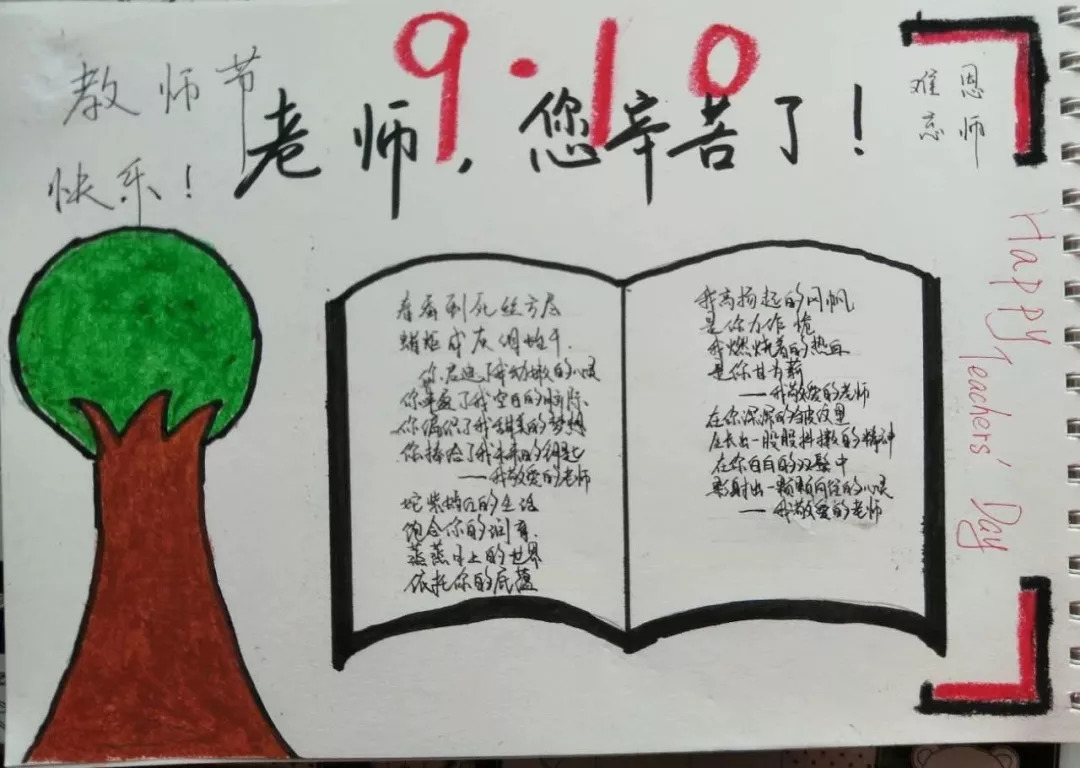 9·10
教师节
快乐！
老师，您辛苦了！
恩师
难忘
Happy Teachers' Day
春蚕到死丝方尽
蜡炬成灰泪始干.
你启迪了我幼嫩的心灵
你丰盈了我空白的脑际.
你编织了我甜美的梦想
你捧给了我未来的钥匙
——我敬爱的老师
的生活
饱含你的润育.
蒸蒸日上的世界
依托你的底蕴
我高扬起的风帆
是你力作桅
我燃烧着的热血
是你甘为薪
——我敬爱的老师
在你深深的皱纹里
生长出一股股抖擞的精神
在你白白的双鬓中
影射出一颗颗向往的心灵
——我敬爱的老师